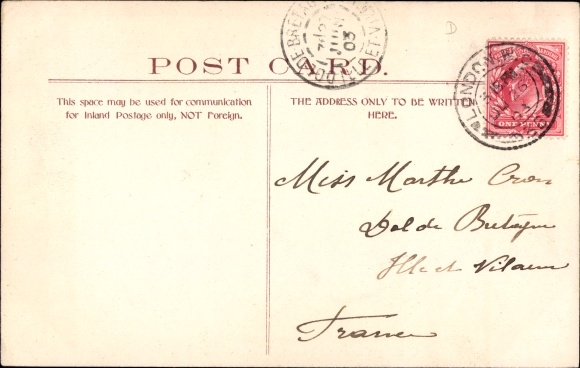 POST CARD.
This space may be used for communication
for Inland Postage only, NOT Foreign.
THE ADDRESS ONLY TO BE WRITTEN
HERE.
LONDON
03
ONE PENNY
D
Miss Marthe
Dol de Bretagne
Ille et Vilaine
France